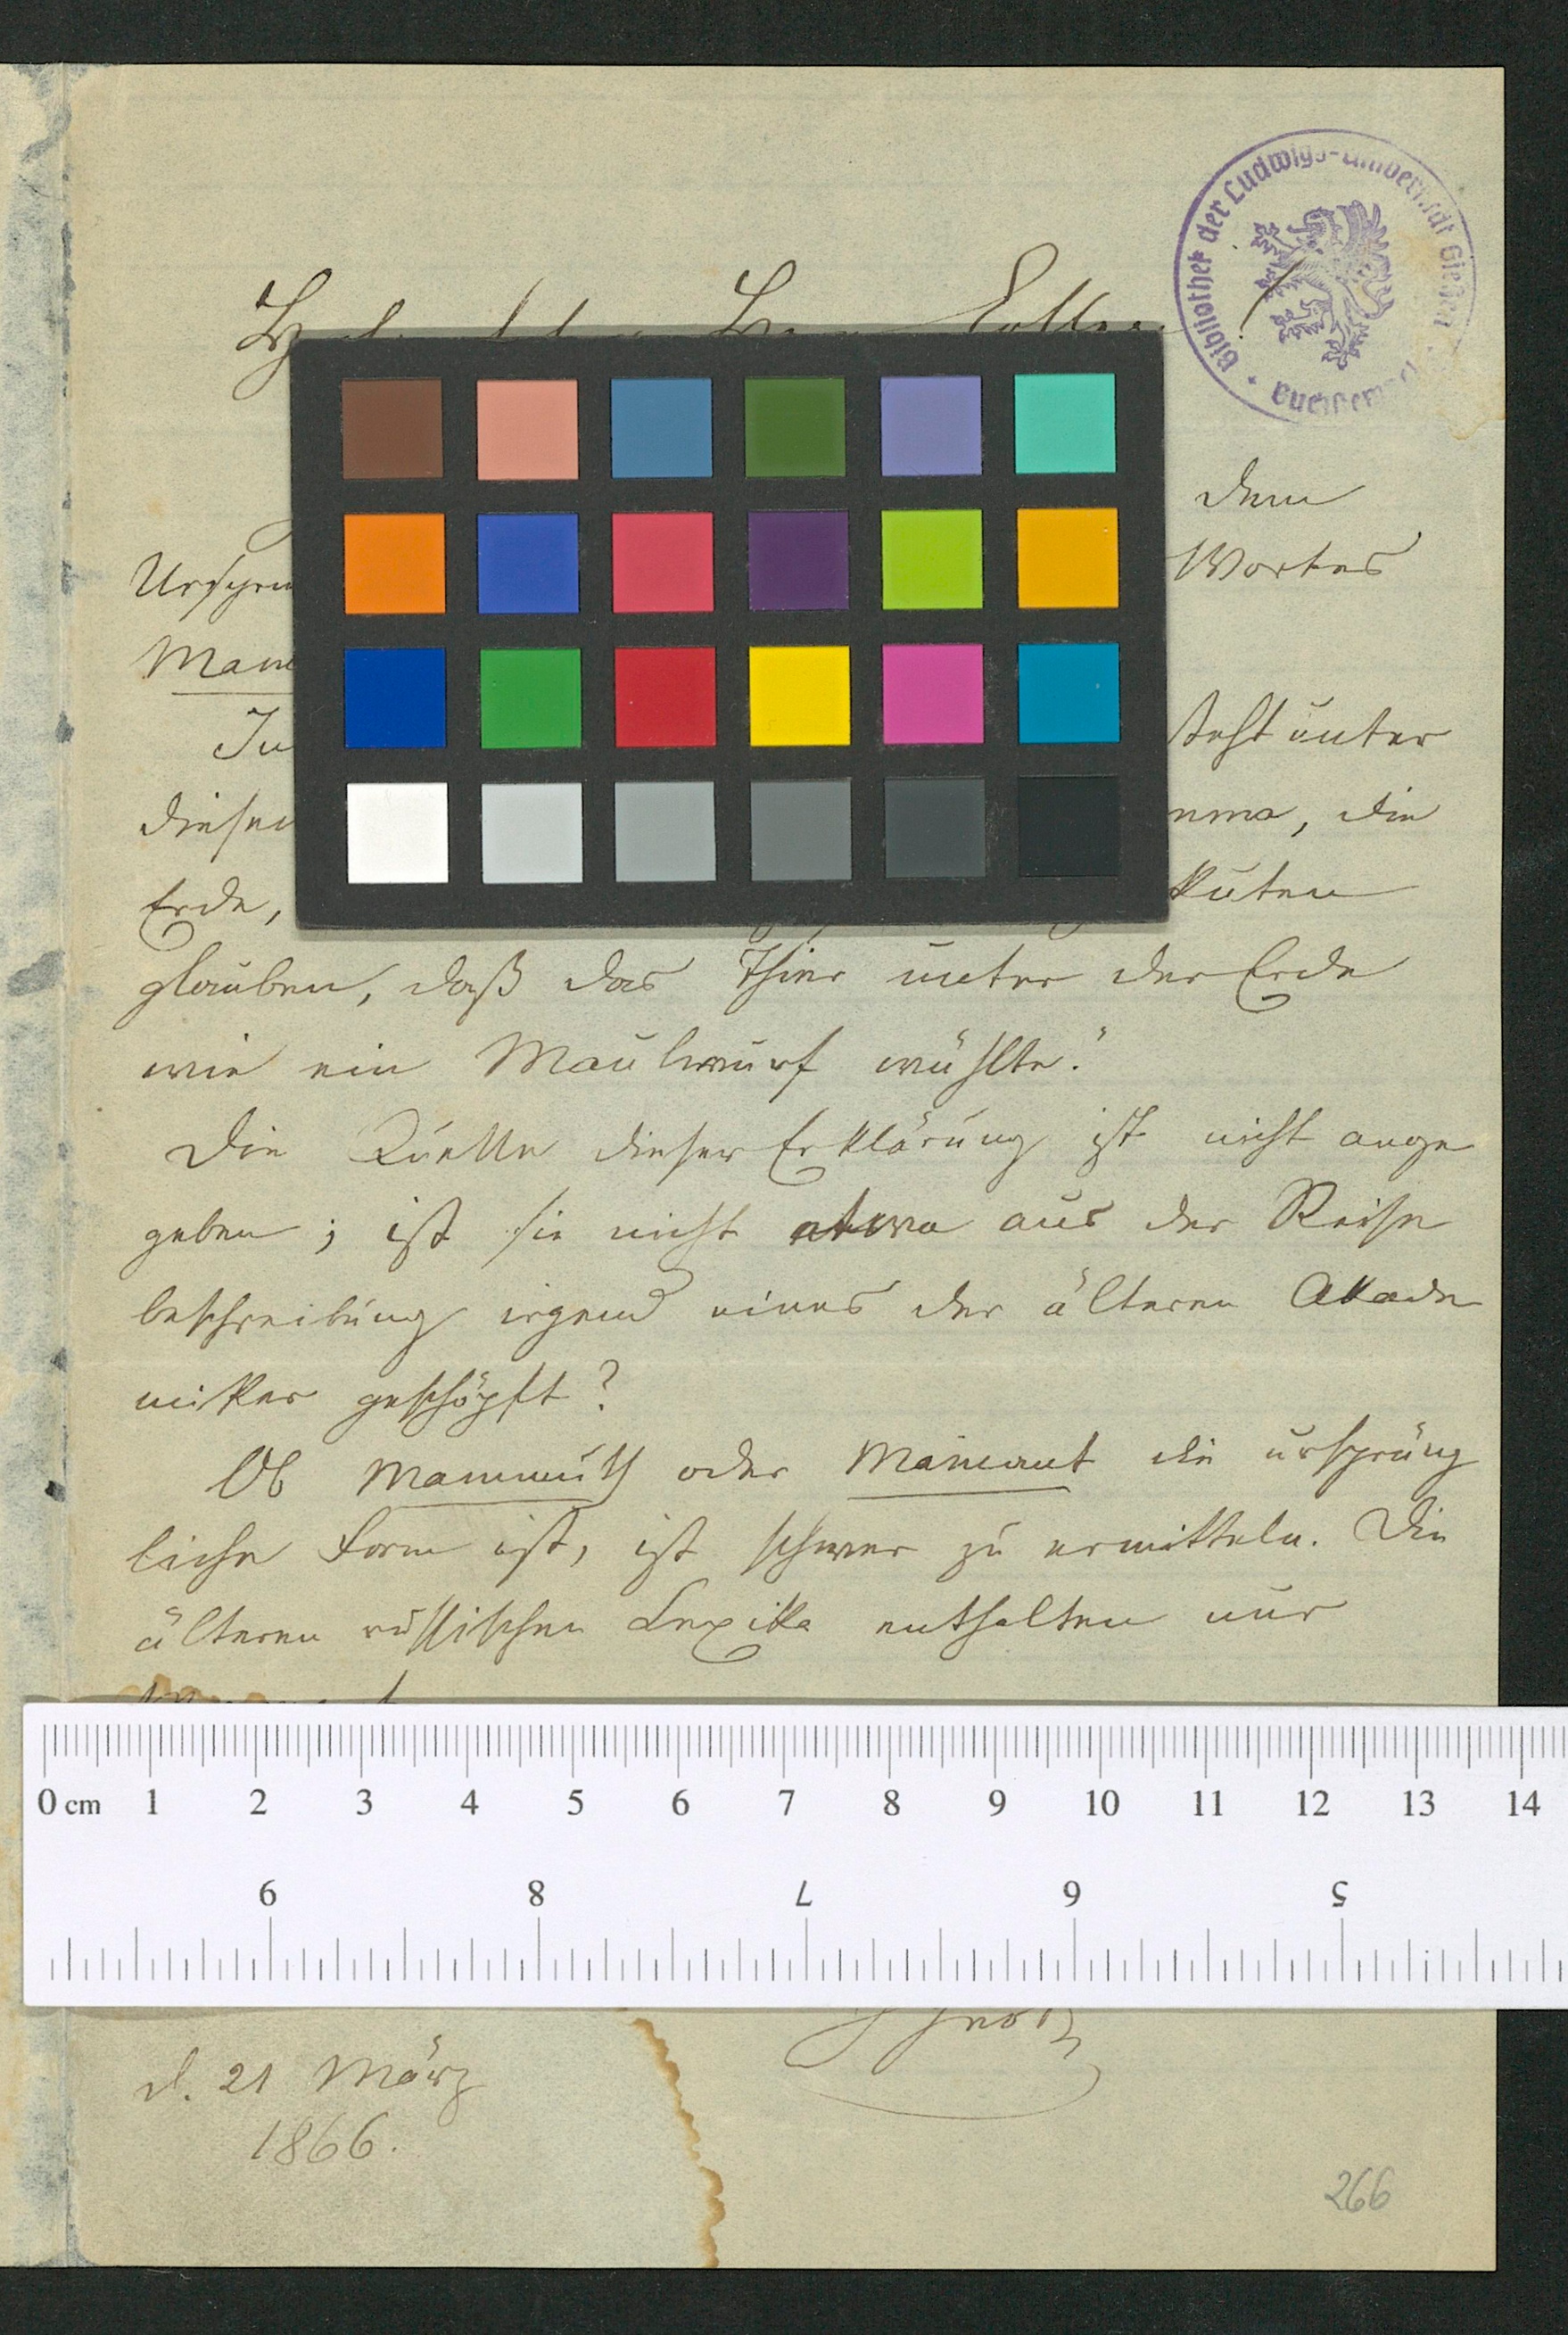 Bibliothek der Ludwigs-Universität Gießen
dem
Wortes
Ju
steht unter
nma, die
Erde,
kuten
glauben, daß das Thier unter der Erde
wie ein Maulwurf wühlte."
Die Quelle dieser Erklärung ist nicht ange
geben; ist sie nicht etwa aus der Reise
beschreibung irgend eines der älteren Akade
miker geschöpft?
Ob Mammuth oder Mamant die ursprüng
liche Form ist, ist schwer zu ermitteln. Die
älteren russischen Lexika enthalten nur
0 cm 1 2 3 4 5 6 7 8 9 10 11 12 13 14
9 8 7 6 5
d. 21 März
1866.
266